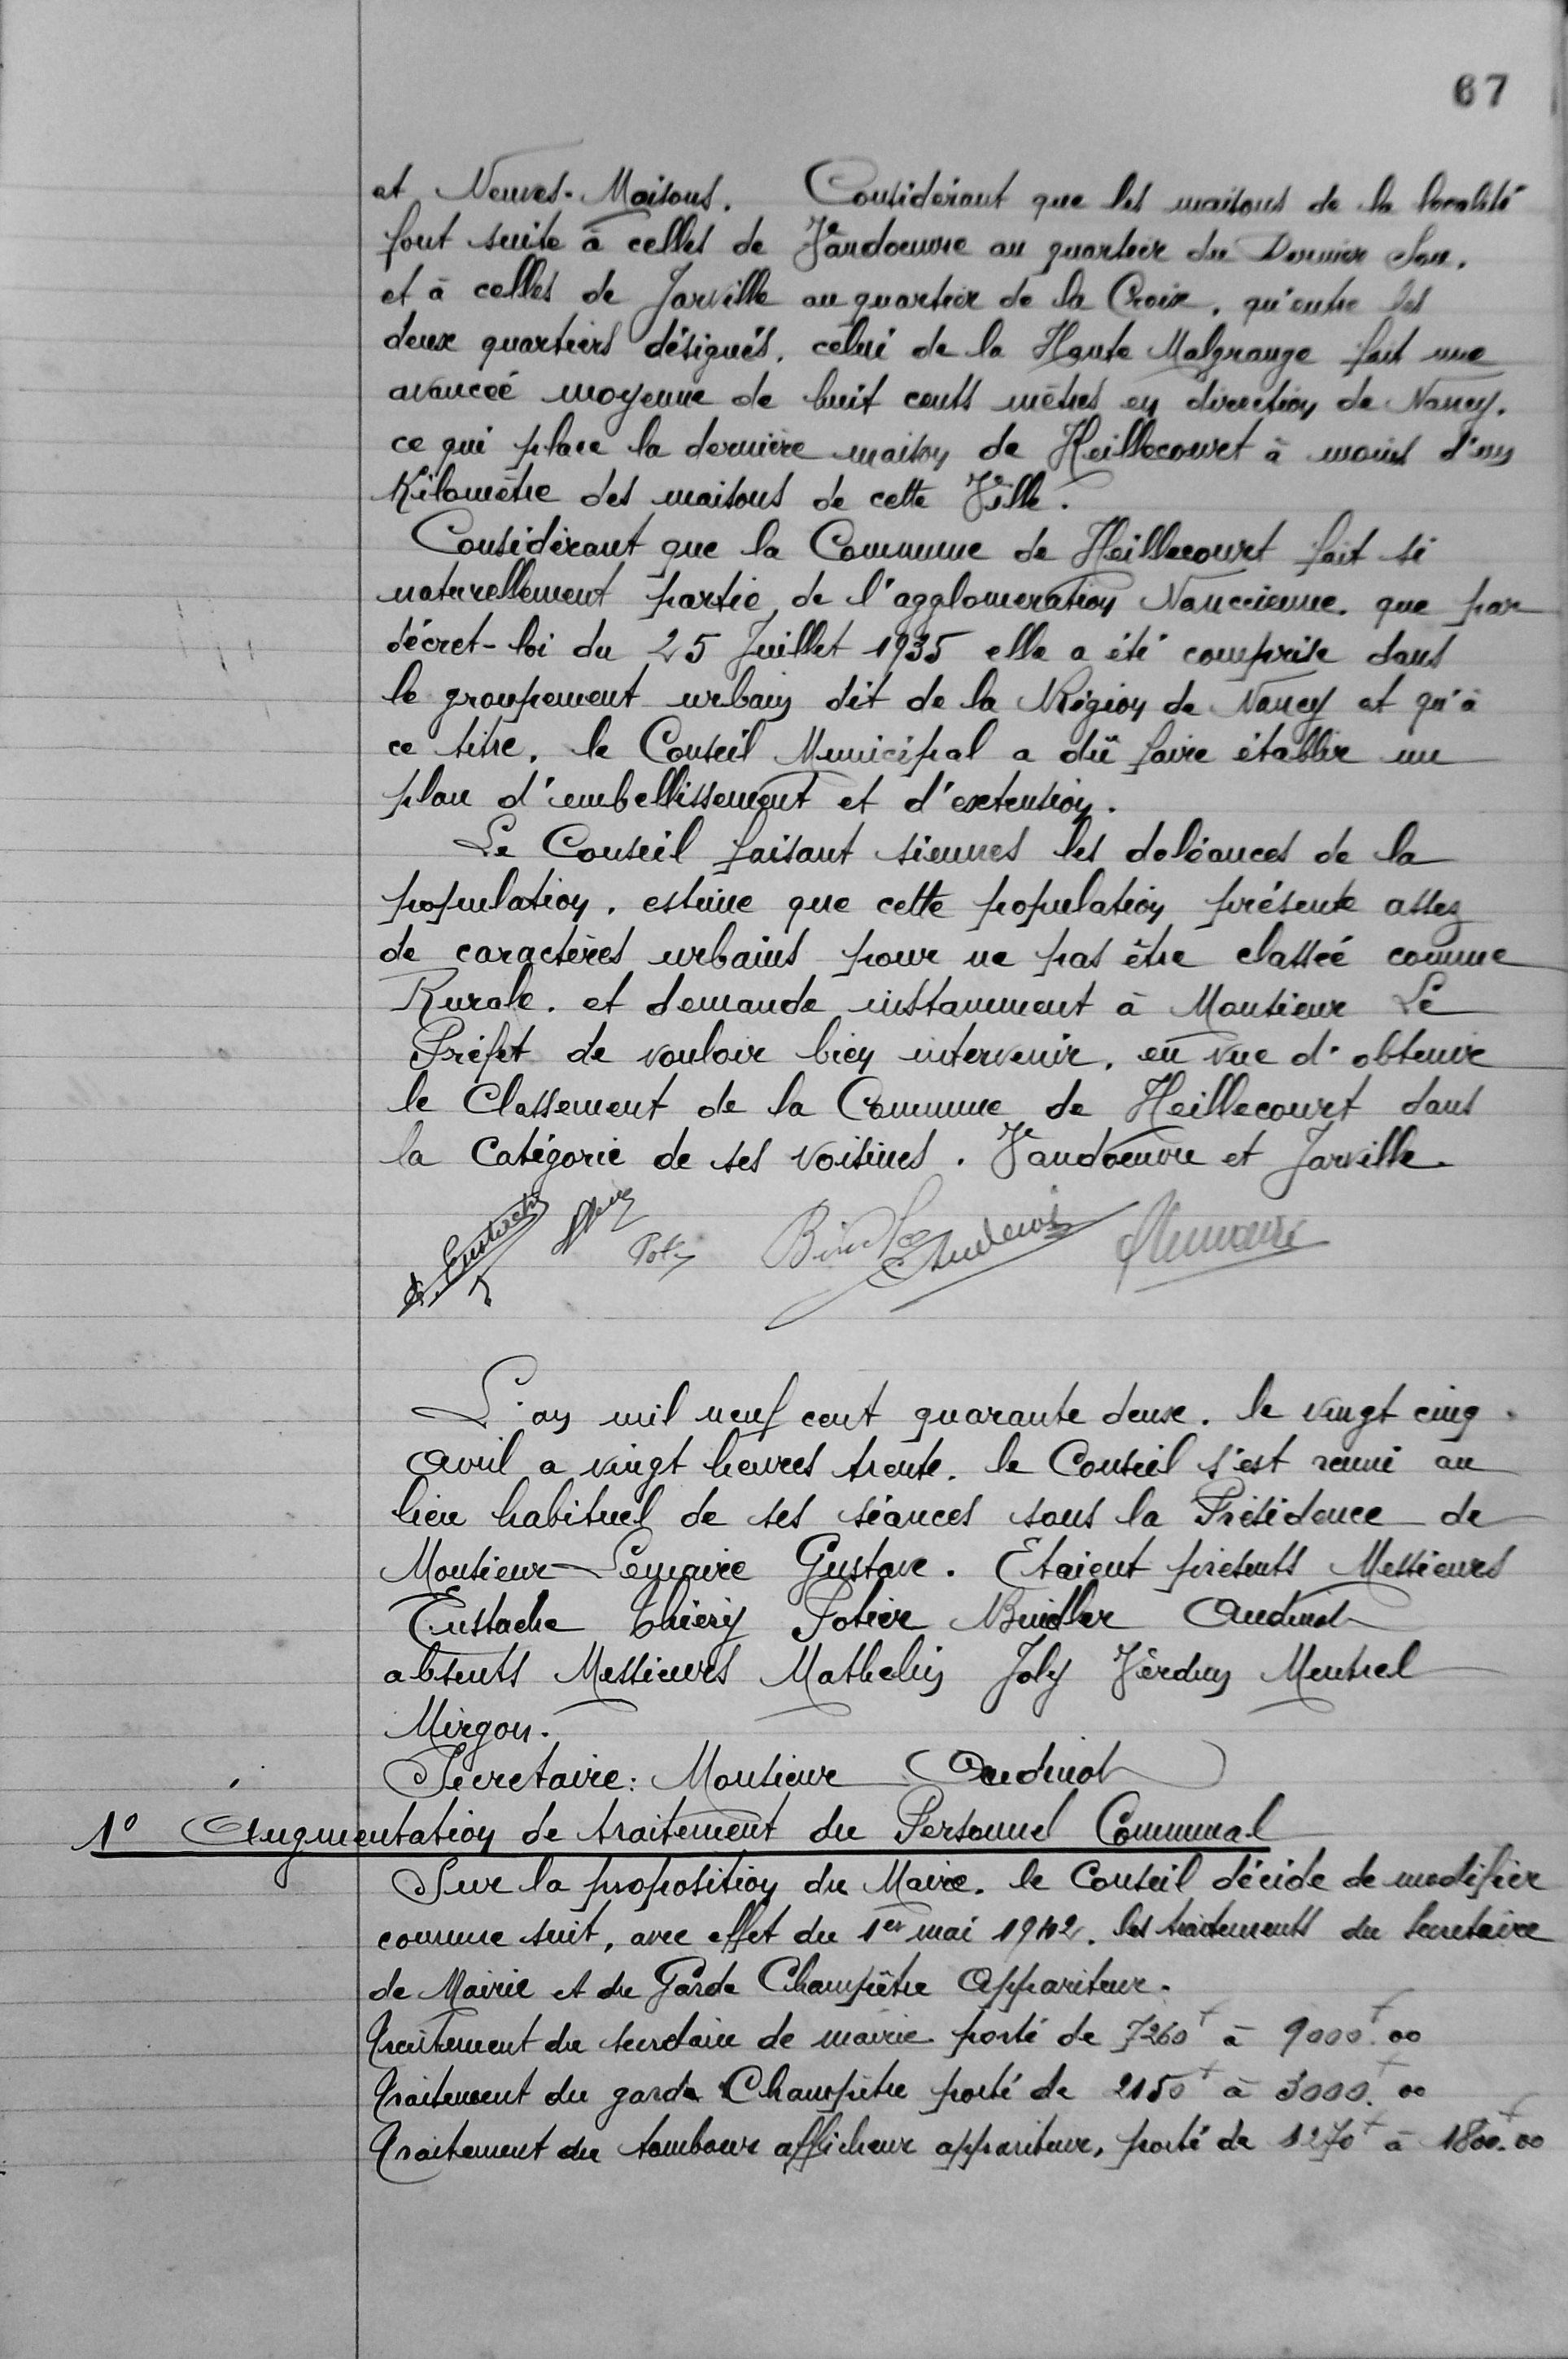 67
et Neuves-Maisons. Considérant que les maisons de la localité
font suite à celles de Vandoeuvre au quartier du Dernier Sou.
et à celles de Jarville au quartier de la Croix. qu'entre les
deux quartiers désignés. celui de la Haute Malgrange fait une
avancée moyenne de huit cents mètres en direction de Nancy.
ce qui place la dernière maison de Heillecourt à moins d'un
Kilomètre des maisons de cette Ville.
Considérant que la Commune de Heillecourt fait si
naturellement partie de l'agglomeration Nanceienne. que par
décret-loi du 25 Juillet 1935 elle a été comprise dans
le groupement urbain dit de la Région de Nancy et qu'à
ce titre. le Conseil Municipal a dû faire établir un
plan d'embellissement et d'extension.
Le Conseil faisant siennes les doléances de la
population. estime que cette population présente assez
de caractères urbains pour ne pas être classée comme
Rurale. et demande instamment à Monsieur Le
Préfet de vouloir bien intervenir. en vue d'obtenir
le Classement de la Commune de Heillecourt dans
la Catégorie de ses voisines. Vandoeuvre et Jarville.
Eustache Audinot Lemaire
L'an mil neuf cent quarante deux. le vingt cinq.
Avril a vingt heures trente. le Conseil s'est reuni au
lieu habituel de ses séances sous la Présidence de
Monsieur Lemaire Gustave. Etaient présents Messieurs
Eustache Thiéry Potier Bindler Audinot
absents Messieurs Mathelin Joly Verdun Mentrel
Mirgon.
Secretaire: Monsieur Audinot
1° Augmentation de traitement du Personnel Communal
Sur la proposition du Maire. le Conseil décide de modifier
comme suit, avec effet du 1er mai 1942. les traitements du Secretaire
de Mairie et du Garde Champêtre Appariteur.
Traitement du secrétaire de mairie porté de 7260f à 9000f.00
Traitement du garde Champêtre porté de 2150f à 3000f.00
Traitement du tambour afficheur appariteur, porté de 1270f à 1800f.00